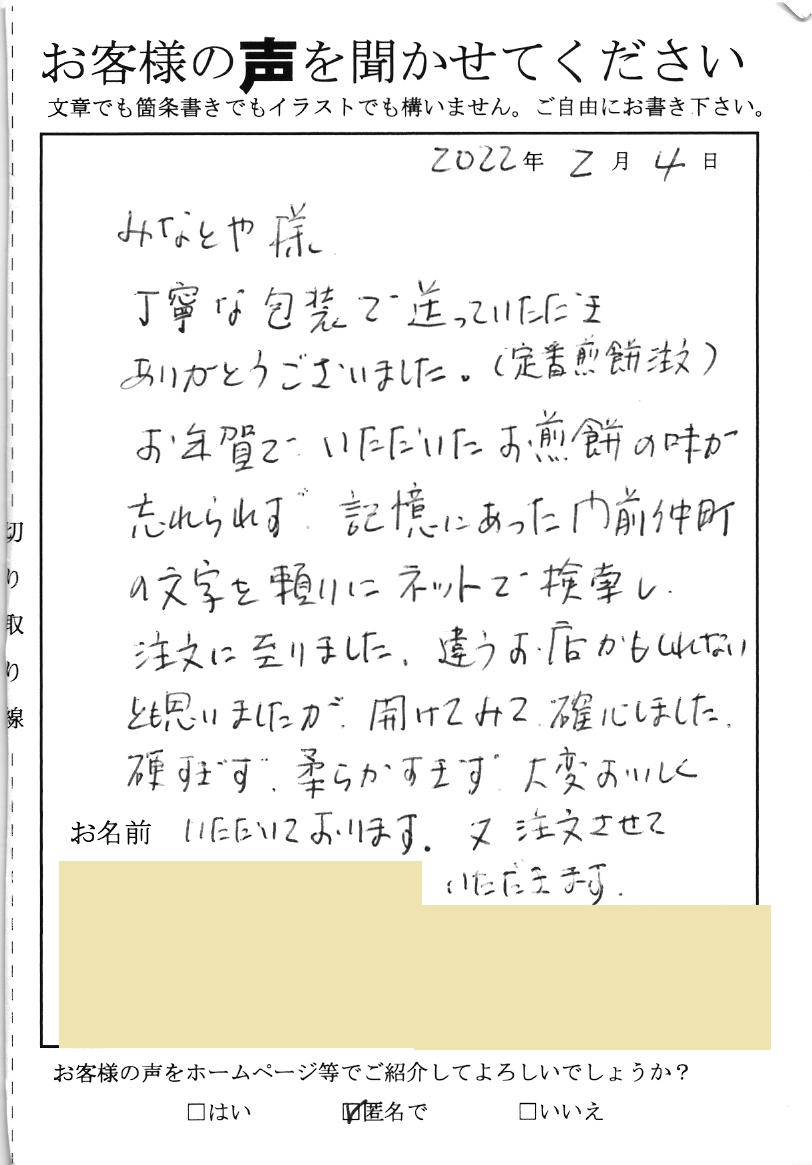 お客様の声を聞かせてください
文章でも箇条書きでもイラストでも構いません。ご自由にお書き下さい。
2022年 2月 4日
みなとや様
丁寧な包装で送っていただき
ありがとうございました。(定番煎餅注文)
お年賀で いただいたお煎餅の味が
忘れられず 記憶にあった門前仲町
の文字を頼りにネットで検索し
注文に至りました。違うお店かもしれない
とも思いましたが、開けてみて確心しました。
硬すぎず、柔らかすぎず 大変おいしく
お名前 いただいております。又 注文させて
いただきます。
お客様の声をホームページ等でご紹介してよろしいでしょうか?
□はい ☑匿名で □いいえ
切り取り線